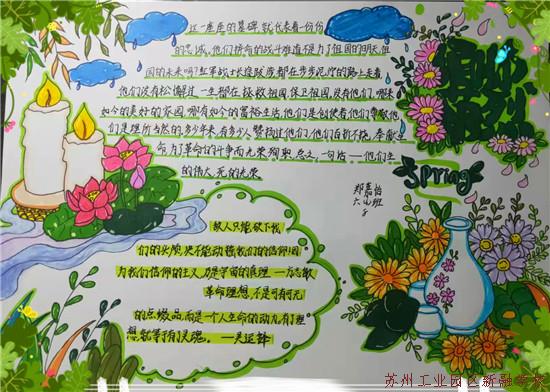 这一座座的墓碑,就代表着一份份
的忠诚。他们拼命的战斗难道不是为了祖国的明天,祖
国的未来吗?红军战士长途跋涉,都在一步步泥泞的路上走着,
他们没有松懈过,一生都在拯救祖国,保卫祖国,没有他们,哪来
如今的美好的家园,哪有如今的富裕生活,他们是创使者,他们
们是理所当然的,多少年来,有多少人赞扬过他们,他们百折不挠,奉献生
命,为了革命的斗争而光荣殉职,总之,一句话——他们生
的伟大,死的光荣
清明
缅怀
先烈
郑嘉怡
六班
8
spring
敌人只能砍下我
们的头颅,决不能动摇我们的信仰!因
为我们信仰的主义,乃是宇宙的真理——方志敏
革命理想,不是可有可无
的点缀品,而是一个人生命的动力,有了理
想,就等于有了灵魂。——吴运铎
苏州工业园区新融学校